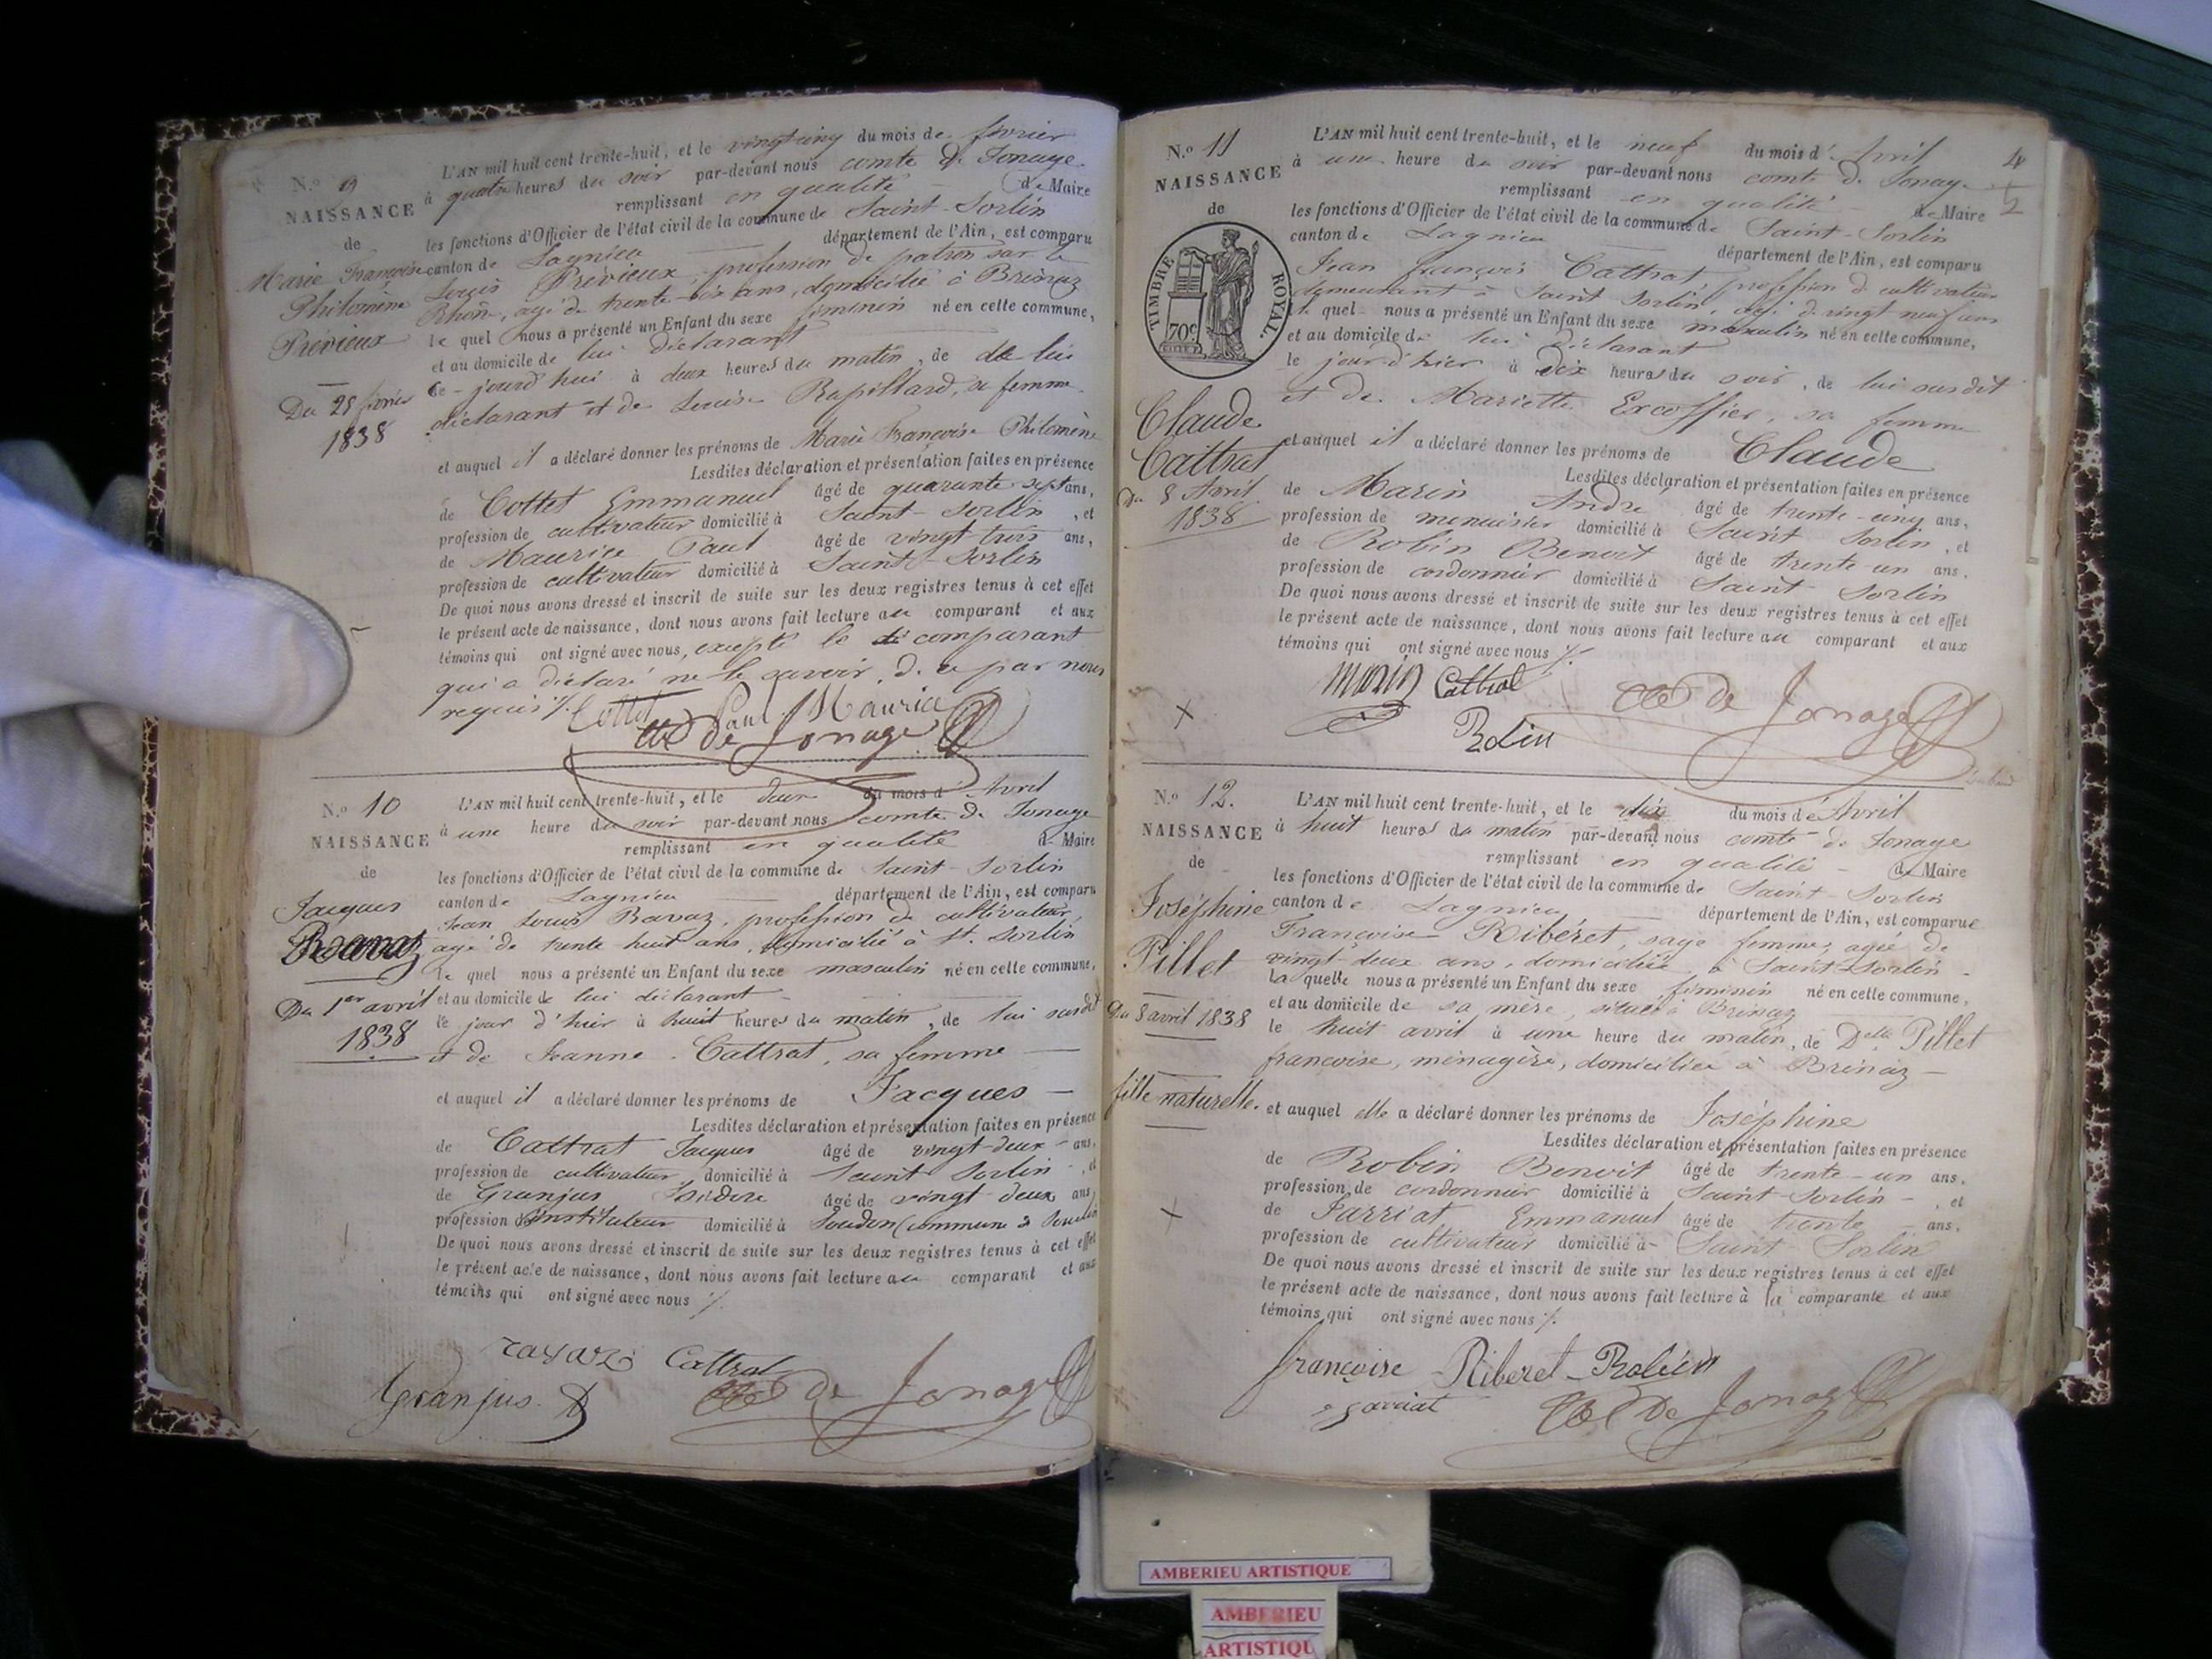 N.º 9
NAISSANCE
de
Marie Françoise
Philomène
Prévieux
Du 25 février
1838
L'AN mil huit cent trente-huit, et le vingt cinq du mois de février
à quatre heures du soir par-devant nous comte de Jonage
remplissant en qualité de Maire
les fonctions d'Officier de l'état civil de la commune de Saint-Sorlin
canton de Lagnieu département de l'Ain, est comparu
Louis Prévieux, profession de patron sur le
Rhône, agé de trente six ans, domicilié à Brénaz
le quel nous a présenté un Enfant du sexe féminin né en cette commune,
et au domicile de lui déclarant
ce-jourd'hui à deux heures du matin, de lui
déclarant et de Louise Rapillard, sa femme
et auquel il a déclaré donner les prénoms de Marie Françoise Philomène
Lesdites déclaration et présentation faites en présence
de Cottet Emmanuel âgé de quarante-sept ans,
profession de cultivateur domicilié à Saint-Sorlin, et
de Maurice Paul âgé de vingt trois ans,
profession de cultivateur domicilié à Saint-Sorlin
De quoi nous avons dressé et inscrit de suite sur les deux registres tenus à cet effet
le présent acte de naissance, dont nous avons fait lecture au comparant et aux
témoins qui ont signé avec nous, excepté le comparant
qui a déclaré ne le savoir, de ce par nous
requis %.
Cottet Paul Maurice
de Jonage
N.º 10
NAISSANCE
de
Jacques
Ravaz
Du 1er avril
1838
L'AN mil huit cent trente-huit, et le deux du mois d'Avril
à une heure du soir par-devant nous comte de Jonage
remplissant en qualité de Maire
les fonctions d'Officier de l'état civil de la commune de Saint-Sorlin
canton de Lagnieu département de l'Ain, est comparu
Jean Louis Ravaz, profession de cultivateur,
agé de trente huit ans, domicilié à St. Sorlin
le quel nous a présenté un Enfant du sexe masculin né en cette commune,
et au domicile de lui déclarant
le jour d'hier à huit heures du matin, de lui susdit
et de Jeanne Cattrat, sa femme
et auquel il a déclaré donner les prénoms de Jacques
Lesdites déclaration et présentation faites en présence
de Cattrat Jacques âgé de vingt-deux ans,
profession de cultivateur domicilié à Saint Sorlin, et
de Granjus Isidore âgé de vingt deux ans
profession d'instituteur domicilié à Soudon (commune de
De quoi nous avons dressé et inscrit de suite sur les deux registres tenus à cet effet
le présent acte de naissance, dont nous avons fait lecture au comparant et aux
témoins qui ont signé avec nous %.
ravaz Cattrat
Granjus de Jonage
N.º 11
NAISSANCE
de
TIMBRE ROYAL.
70c
Claude
Cattrat
Du 8 Avril
1838
4
L'AN mil huit cent trente-huit, et le neuf du mois d'Avril
à une heure du soir par-devant nous comte de Jonage
remplissant en qualité de Maire
les fonctions d'Officier de l'état civil de la commune de Saint-Sorlin
canton de Lagnieu département de l'Ain, est comparu
Jean françois Cattrat, profession de cultivateur
demeurant à Saint Sorlin, agé de vingt neuf ans
le quel nous a présenté un Enfant du sexe masculin né en cette commune,
et au domicile de lui déclarant
le jour d'hier à dix heures du soir, de lui susdit
et de Mariette Excoffier, sa femme
et auquel il a déclaré donner les prénoms de Claude
Lesdites déclaration et présentation faites en présence
de Marin André âgé de trente-cinq ans,
profession de menuisier domicilié à Saint Sorlin, et
de Robin Benoit âgé de trente-un ans,
profession de cordonnier domicilié à Saint-Sorlin
De quoi nous avons dressé et inscrit de suite sur les deux registres tenus à cet effet
le présent acte de naissance, dont nous avons fait lecture au comparant et aux
témoins qui ont signé avec nous %.
Marin Cattrat de Jonage
Robin
N.º 12.
NAISSANCE
de
Joséphine
Pillet
Du 8 avril 1838
fille naturelle.
L'AN mil huit cent trente-huit, et le dix du mois d'Avril
à huit heures du matin par-devant nous comte de Jonage
remplissant en qualité de Maire
les fonctions d'Officier de l'état civil de la commune de Saint-Sorlin
canton de Lagnieu département de l'Ain, est comparue
Françoise Ribéret, sage femme, agée de
vingt-deux ans, domiciliée à Saint-Sorlin
La quelle nous a présenté un Enfant du sexe féminin né en cette commune,
et au domicile de sa mère, situé à Brénaz
le huit avril à une heure du matin, de Delle Pillet
françoise, ménagère, domiciliée à Brénaz
et auquel elle a déclaré donner les prénoms de Joséphine
Lesdites déclaration et présentation faites en présence
de Robin Benoit âgé de trente-un ans,
profession de cordonnier domicilié à Saint-Sorlin, et
de Jarriat Emmanuel âgé de trente ans,
profession de cultivateur domicilié à Saint-Sorlin
De quoi nous avons dressé et inscrit de suite sur les deux registres tenus à cet effet
le présent acte de naissance, dont nous avons fait lecture à la comparante et aux
témoins qui ont signé avec nous %.
françoise Riberet Robin
De Jonage
AMBERIEU ARTISTIQUE
AMBERIEU
ARTISTIQU